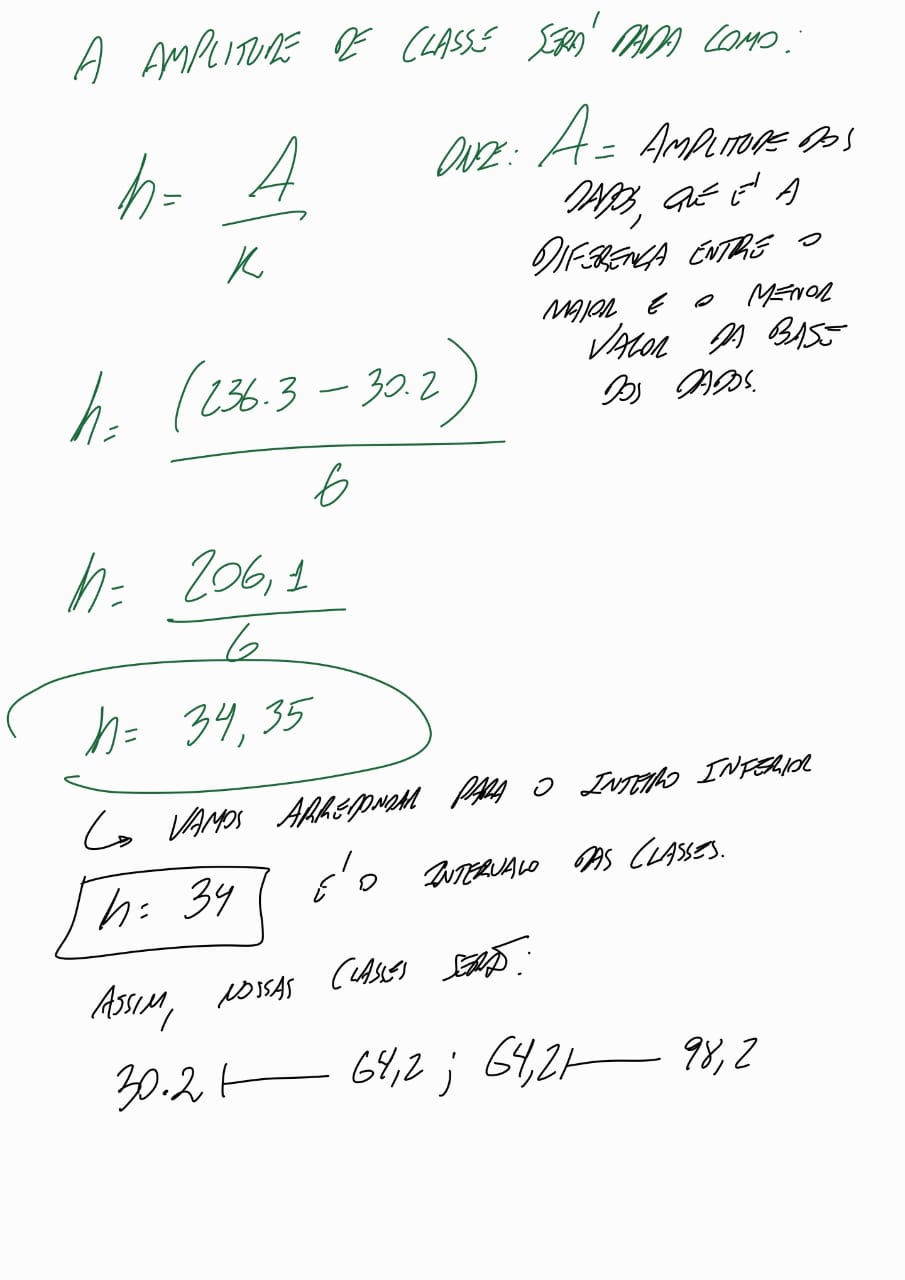 A AMPLITUDE DE CLASSE SERÁ DADA COMO:
h = A / K
ONDE: A = AMPLITUDE DOS
DADOS, QUE É A
DIFERENÇA ENTRE O
MAIOR E O MENOR
VALOR DA BASE
DOS DADOS.
h = (236.3 - 30.2) / 6
h = 206,1 / 6
h = 34,35
↳ VAMOS ARREDONDAR PARA O INTEIRO INFERIOR
h = 34 É O INTERVALO DAS CLASSES.
ASSIM, NOSSAS CLASSES SERÃO:
30.2 ⊢ 64,2 ; 64,2 ⊢ 98,2